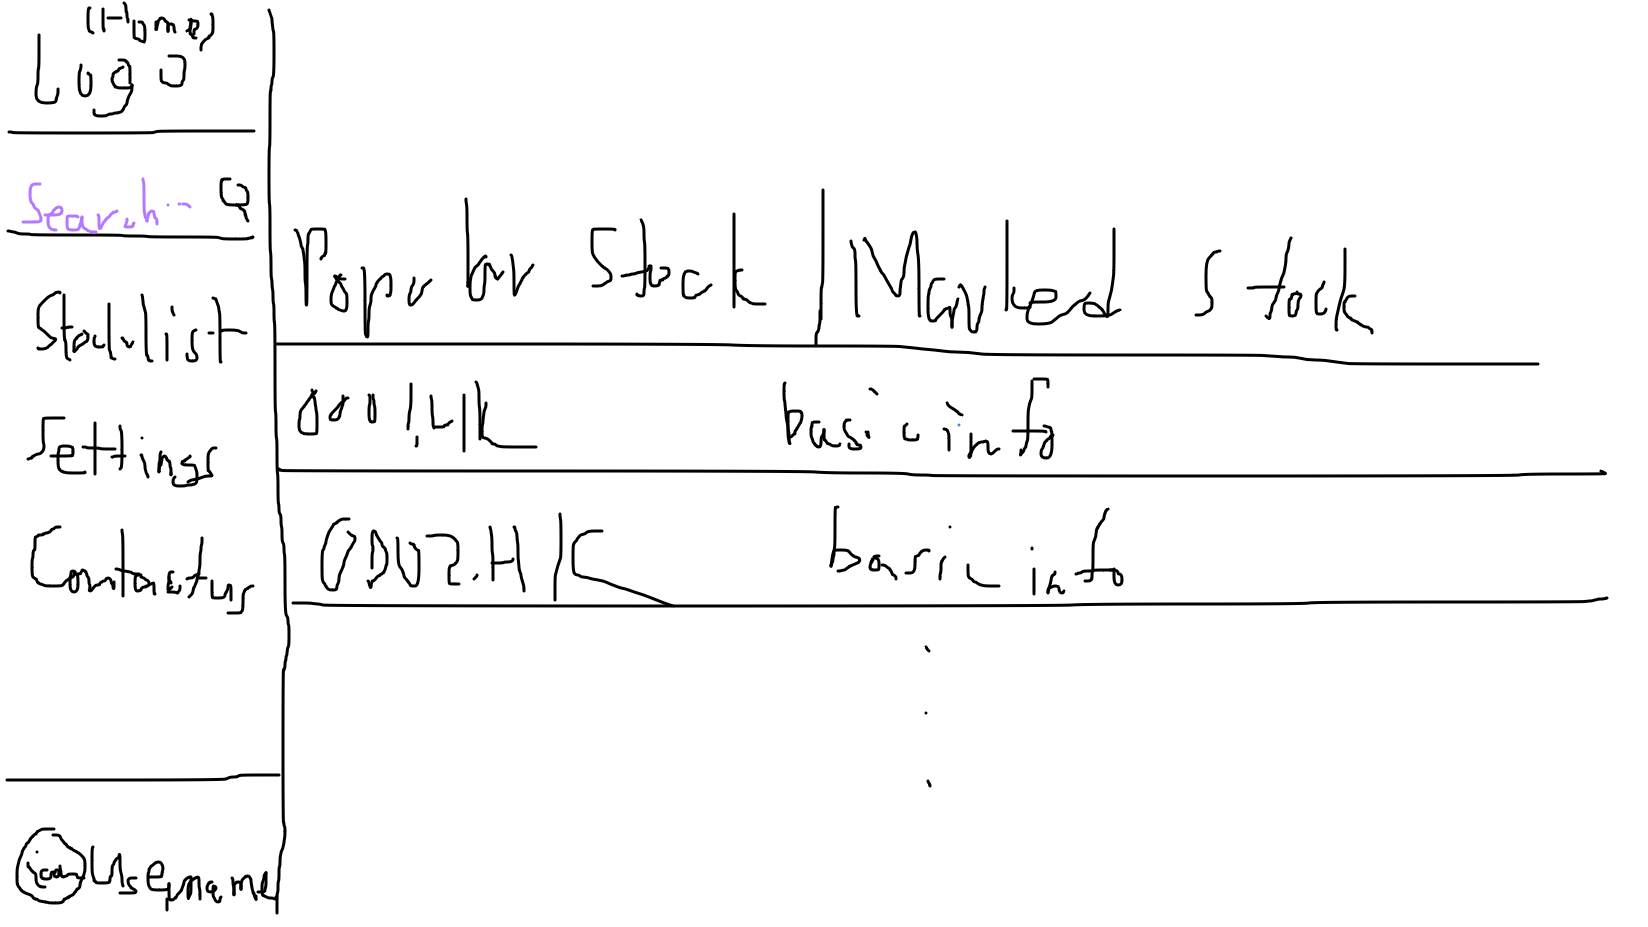 (Home)
Logo
Search...
Stocklist
Settings
Contact us
icon Username
Popular Stock | Marked Stock
0001.HK basic info
0002.HK basic info